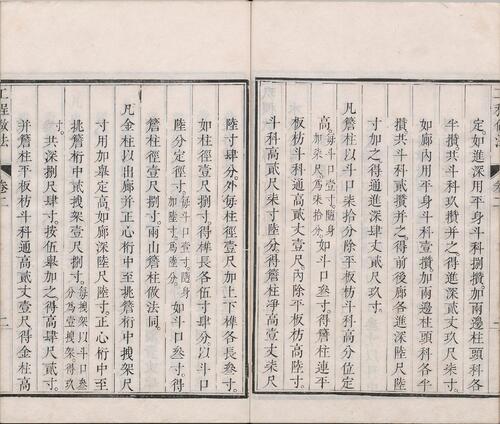 定如進深用平身斗科捌攢加兩邊柱頭科各
半攢共斗科玖攢併之得進深貳丈玖尺柒寸
如廊內用平身斗科壹攢加兩邊柱頭科各半
攢共斗科貳攢併之得前後廊各進深陸尺陸
寸加之得通進深肆丈貳尺玖寸
凡簷柱以斗口柒拾分除平板枋斗科高分位定
高每斗口壹寸隨身加柒尺為柒拾分如斗口叁寸得簷柱連平
板枋斗科通高貳丈壹尺內除平板枋陸寸
斗科高貳尺柒寸陸分得簷柱淨高壹丈柒尺
工程做法 卷二
陸寸肆分外每柱徑壹尺加上下榫各長叁寸
如柱徑壹尺捌寸得榫長各伍寸肆分以斗口
陸分定徑寸每斗口壹寸隨身加陸寸為陸分如斗口叁寸得
簷柱徑壹尺捌寸兩山簷柱做法同
凡金柱以出廊并正心桁中至挑簷桁中拽架尺
寸用加舉定高如廊深陸尺陸寸正心桁中至
挑簷桁中貳拽架壹尺捌寸每拽架以斗口叁分為壹拽架得玖
寸共深捌尺肆寸按伍舉加之得高肆尺貳寸
并簷柱平板枋斗科通高貳丈壹尺得金柱高